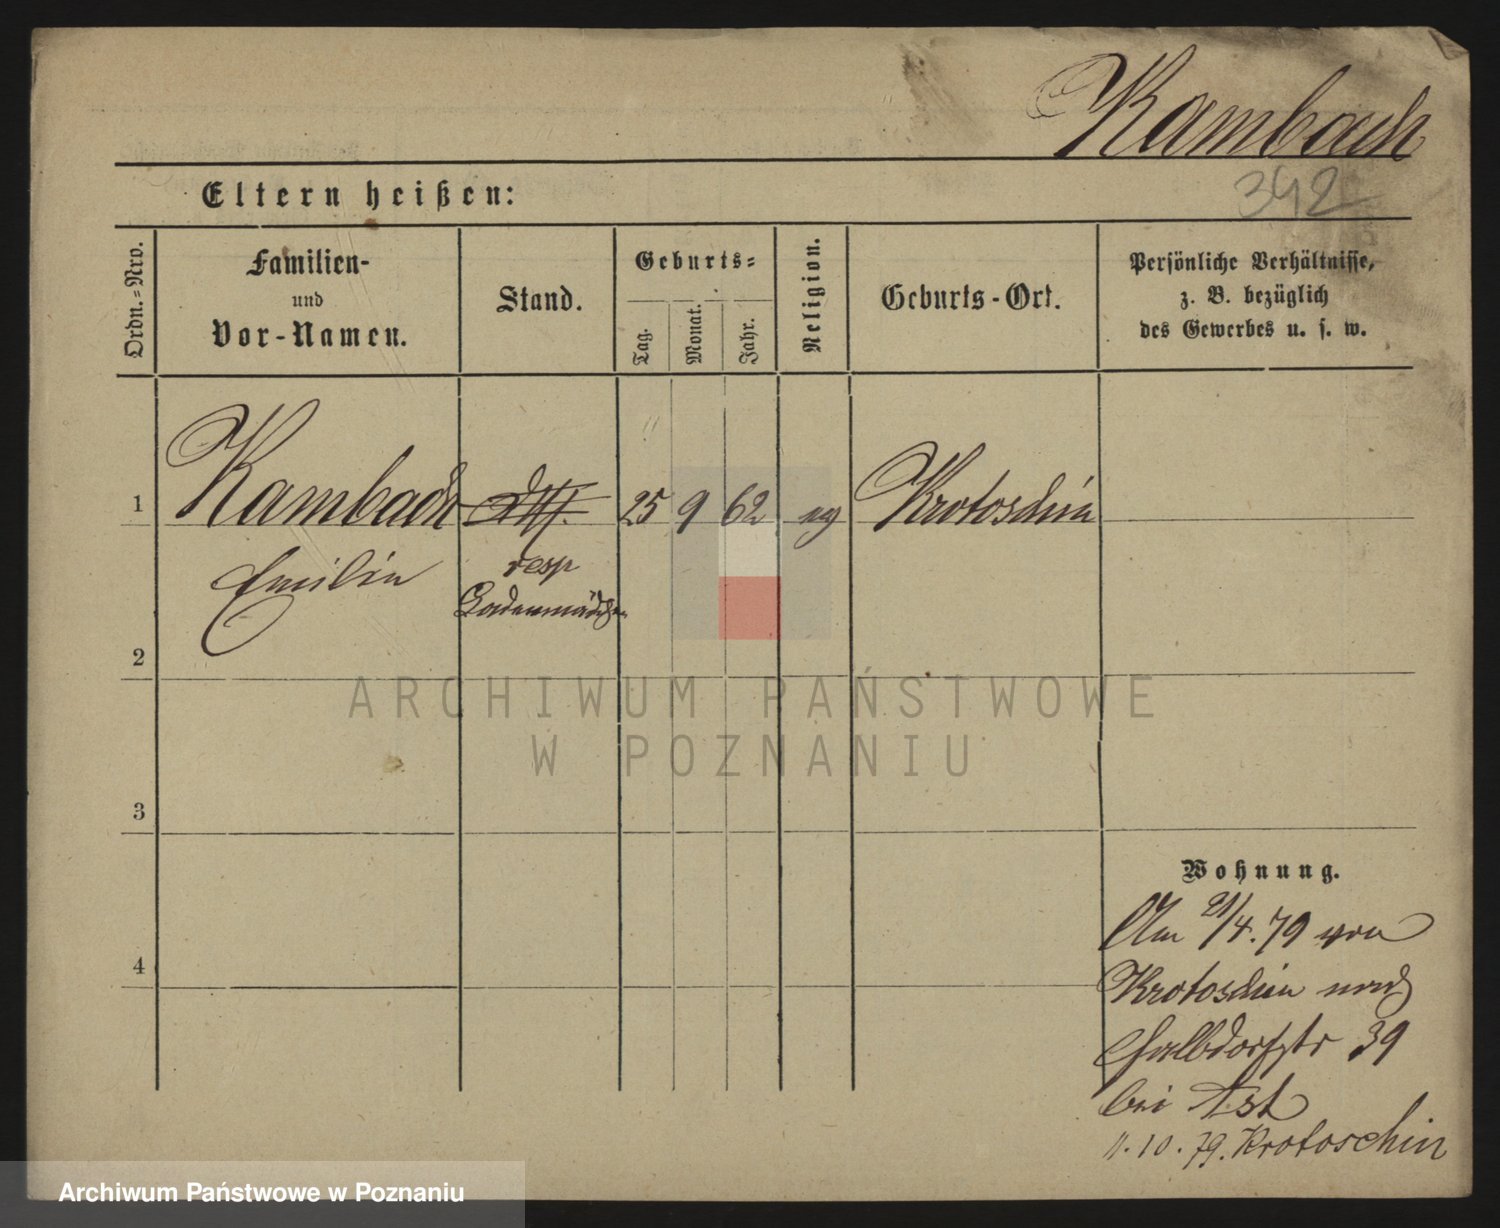 Kambach
392
Eltern heißen:
Ordn.-Nro.
Familien-
und
Vor-Namen.
Stand.
Geburts-
Tag.
Monat.
Jahr.
Religion.
Geburts-Ort.
Persönliche Verhältnisse,
z. B. bezüglich
des Gewerbes u. s. w.
1
Kambach
25
9
62
Krotoschin
Emilie
resp
Ladenmädchen
2
ARCHIWUM PAŃSTWOWE
W POZNANIU
3
Wohnung.
4
Am 21/4.79 von
Krotoschin nach
Halbdorfstr 39
bei Ast
11.10.79. Krotoschin
Archiwum Państwowe w Poznaniu